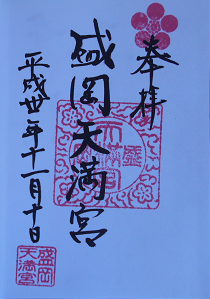 奉拝
盛岡天満宮
平成卅年十一月十日
盛岡
天満宮